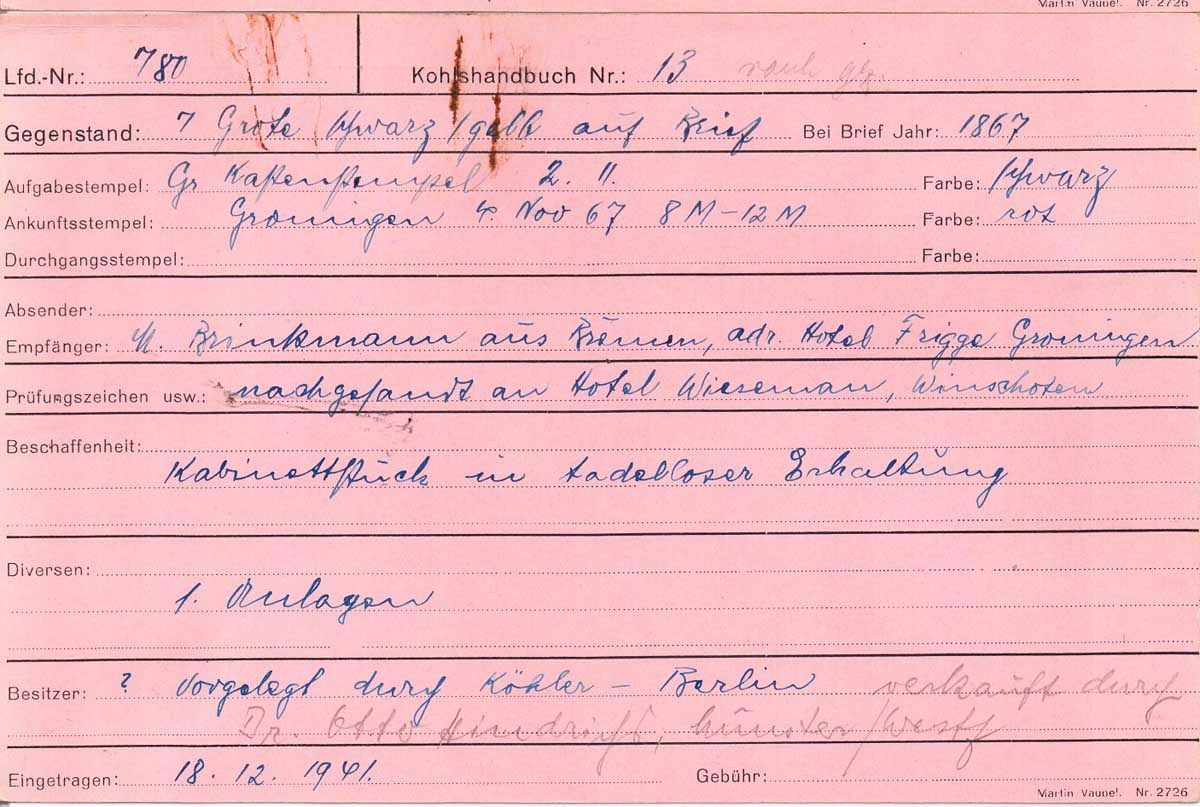 Martin Vaupel. Nr. 2726
Lfd.-Nr.: 780 Kohlshandbuch Nr.: 13
Gegenstand: 7 Grote schwarz/gelb auf Brief Bei Brief Jahr: 1867
Aufgabestempel: Gr Kastenstempel 2. 11. Farbe: schwarz
Ankunftsstempel: Groningen 4. Nov 67 8 M-12 M Farbe: rot
Durchgangsstempel: Farbe:
Absender:
Empfänger: M. Brinkmann aus Bremen, adr. Hotel Frigge Groningen
Prüfungszeichen usw.: nachgesandt an Hotel Wieseman, Winschoten
Beschaffenheit:
Kabinettstück in tadelloser Erhaltung
Diversen:
1. Anlagen
Besitzer: ? vorgelegt durch Köhler - Berlin verkauft durch
Dr. Otto Hindrichs, Münster/Westf
Eingetragen: 18. 12. 1941. Gebühr:
Martin Vaupel. Nr. 2726